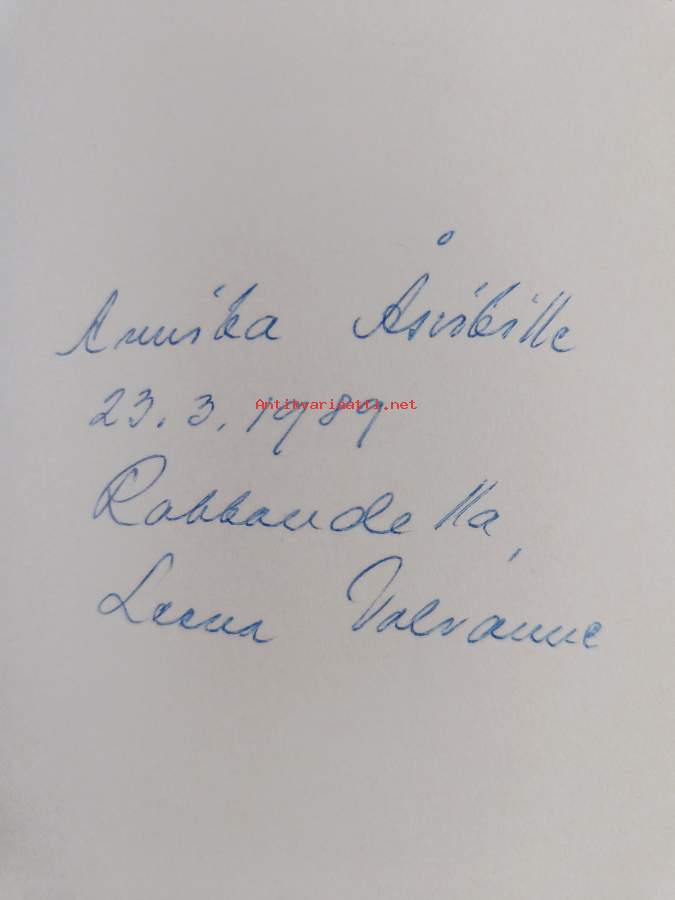 Annika
23.3.1989
Antikvariaatti.net
Rakkaudella,
Leena Valvanne